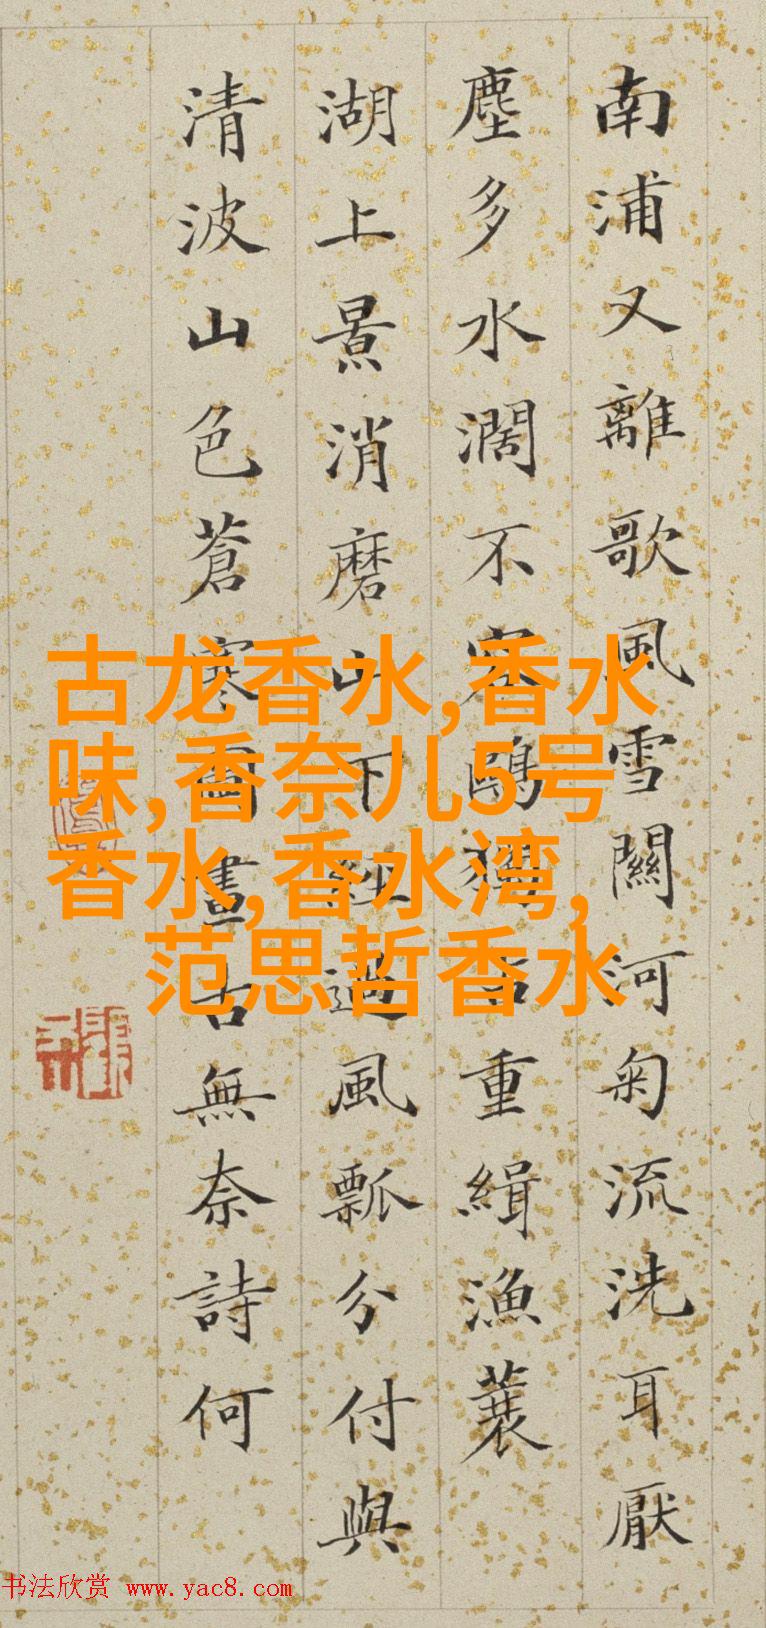 南浦又離歌風雪關河匊流洗耳厭
塵多水濶不容鷗獨占重緝漁蓑
湖上景消磨山下經過風瓢分付與
清波山色蒼寒圖畫古無奈詩何
古龙香水,香水
味,香奈儿5号
香水,香水湾,
范思哲香水
书法欣赏 www.yac8.com